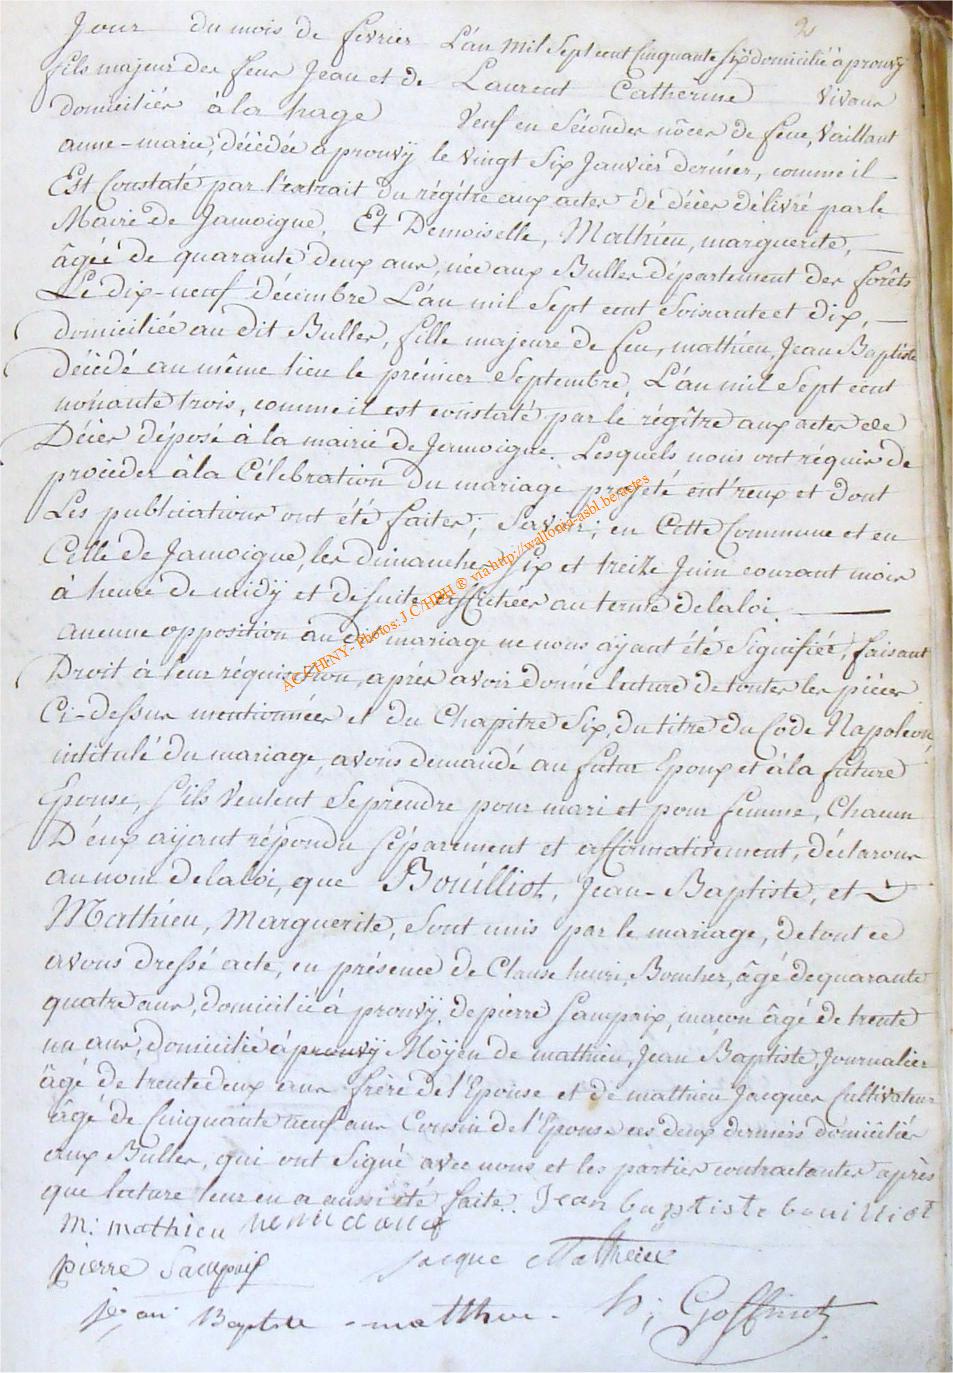 2
Jour du mois de fevrier L'an mil Sept cent Cinquante Six domicilié à prouvÿ
fils majeur des feus Jean et de Laurent Catherine vivans
domiciliés à la hage Veuf en Sécondes nôces de feue, Vaillant
anne-marie, décédée à prouvÿ le vingt Six Janvier dernier, comme il
Est Constaté par l'extrait du régitre aux actes de décès délivré par le
Maire de Jamoigne, Et Demoiselle, Mathieu, marguerite,
âgée de quarante deux ans, née aux Bulles département des forêts
Le dix-neuf décembre L'an mil Sept cent Soixante et dix,
domiciliée au dit Bulles, fille majeure de feu, mathieu, Jean Baptiste
Décédé au même lieu le prémier Septembre L'an mil Sept cent
nonante trois, comme il est constaté par le régître aux actes de
Décès déposé à la mairie de Jamoigne. Lesquels nous ont réquis de
procéder à la Célebration du mariage projeté entr'eux et dont
Les publications ont été faites; Savoir; en Cette Commune et en
Celle de Jamoigne, les dimanches Six et treize Juin courant mois
à heure de midÿ et de suite affichées au terme de la loi
aucune opposition au dit mariage ne nous aÿant été Signifiée, faisant
Droit à leur réquisition, après avoir donné lecture de toutes les pièces
Ci-dessus mentionnées et du Chapitre Six, du titre du Code Napoleon,
intitulé du mariage, avons demandé au futur Epoux et à la future
Epouse, S'ils veulent Se prendre pour mari et pour femme, Chacun
D'eux aÿant répondu Séparement et affirmativement, déclarons
au nom de la loi, que Bouilliot, Jean-Baptiste, et
Mathieu, Marguerite, Sont unis par le mariage, de tout ce
avons dressé acte, en présence de Clause henri, Boucher, âgé de quarante
quatre ans, domicilié à prouvÿ, de pierre Sampaix, maçon âgé de trente
un ans, domicilié à prouvÿ Moÿen de mathieu, Jean Baptiste, Journalier
âgé de trente deux ans frère de l'Epouse et de mathieu Jacques Cultivateur
âgé de Cinquante neuf ans Cousin de l'Epouse ces deux derniers domiciliés
aux Bulles, qui ont Signé avec nous et les parties contractantes après
que lecture leur en a aussi été faite. Jean baptiste bouilliot
M: mathieu henri
pierre Sampaix Jacque Mathieu
jean Baptiste matthieu h: Goffinet
ACCHENY- Photos: J.C/HPH ® via http://wallonia-asbl.be/actes